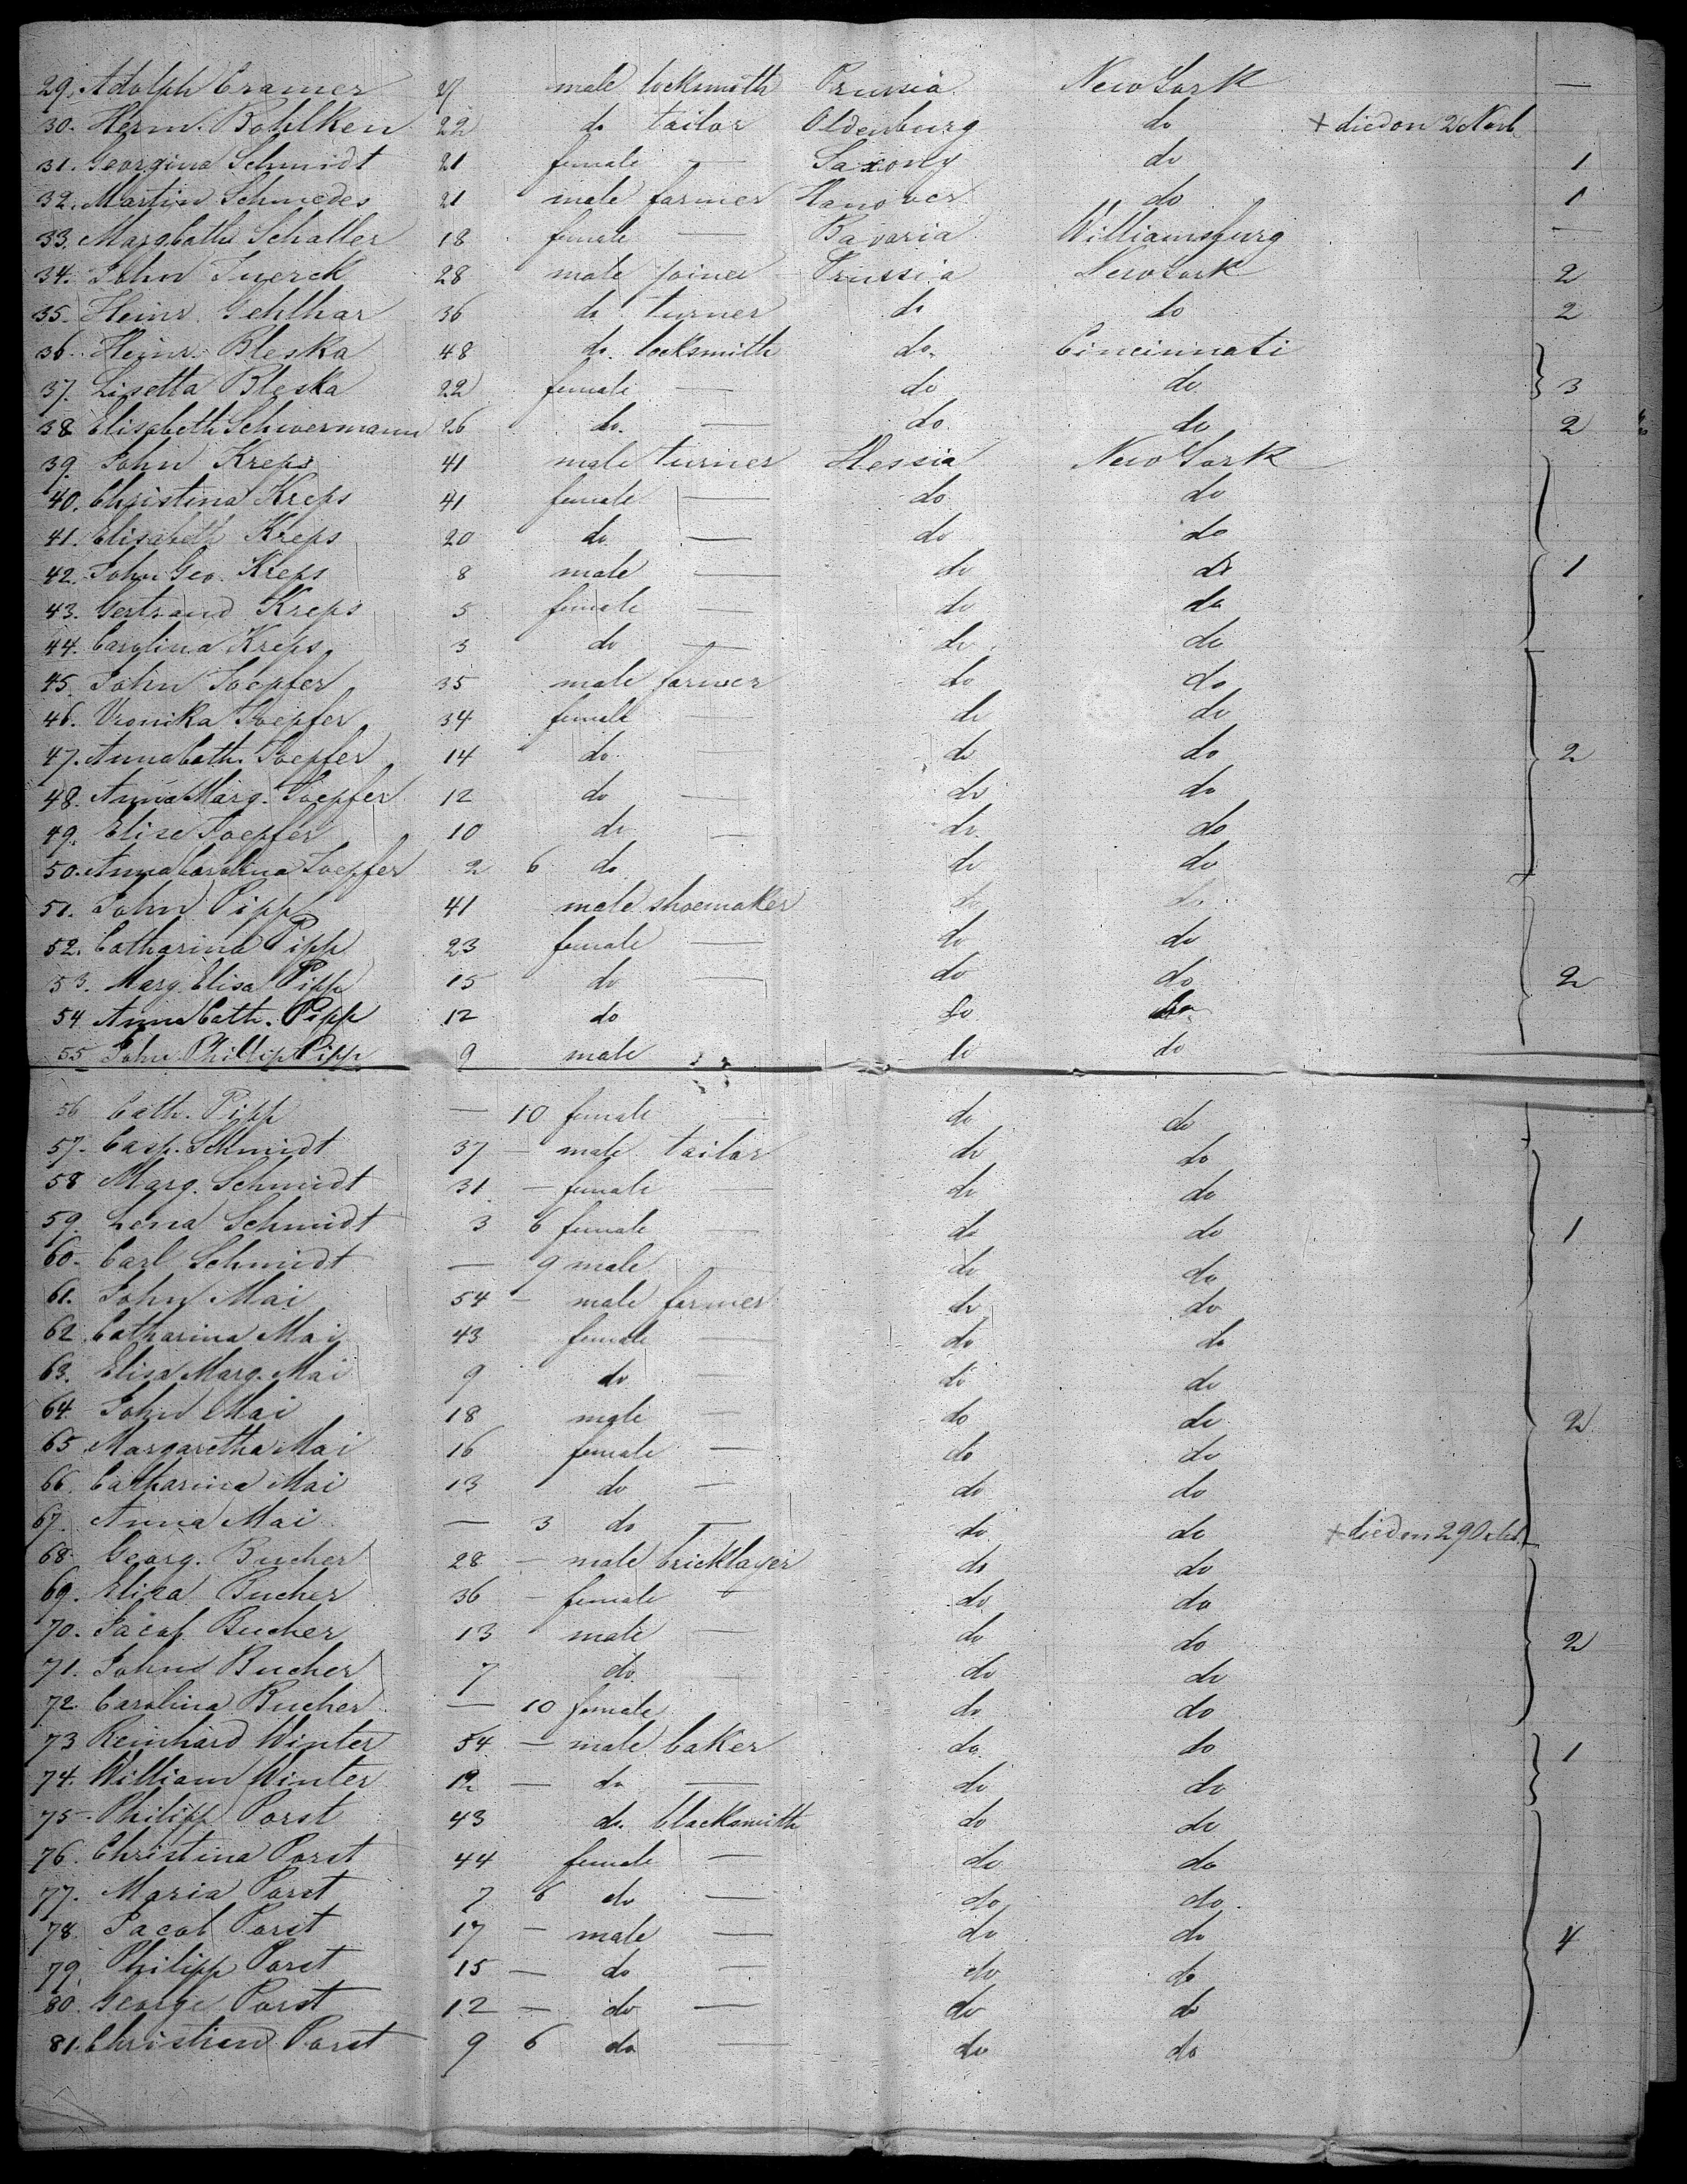 29. Adolph Cramer 27 male locksmith Prussia New York —
30. Herm. Bohlken 22 do tailor Oldenburg do + died on 2 Novb
31. Georgina Schmidt 21 female — Saxony do 1
32. Martin Schmedes 21 male farmer Hanover do 1
33. Marg Cath. Schaller 18 female — Bavaria Williamsburg —
34. John Tuerck 28 male joiner Prussia New York 2
35. Heinr. Gehlhar 36 do turner do do 2
36. Heinr. Bleska 48 do. locksmith do. Cincinnati
37. Lisetta Bleska 22 female — do do 3
38 Elisabeth Schwermann 26 do. — do do 2
39. John Kreps 41 male turner Hessia New York
40. Christina Kreps 41 female — do do
41. Elisabeth Kreps 20 do — do do
42. John Geo. Kreps 8 male — do do 1
43. Gertraud Kreps 5 female — do do
44. Carolina Kreps 3 do — do do
45. John Toepfer 35 male farmer do do
46. Vronika Toepfer 34 female — do do
47. Anna Cath. Toepfer 14 do — do do 2
48. Anna Marg. Toepfer 12 do — do do
49. Elise Toepfer 10 do — do do
50. Anna Carolina Toepfer 2 6 do do do
51. John Pipp 41 male shoemaker do do
52. Catharina Pipp 23 female — do do
53. Marg. Elisa Pipp 15 do — do do 2
54 Anna Cath. Pipp 12 do do do
55 John Phillip Pipp 9 male do do
56 Cath. Pipp — 10 female — do do
57. Casp. Schmidt 37 — male tailor do do
58 Marg. Schmidt 31 — female — do do
59. Lena Schmidt 3 6 female — do do 1
60. Carl Schmidt — 9 male — do do
61. John Mai 54 — male farmer do do
62. Catharina Mai 43 female — do do
63. Elisa Marg. Mai 9 do — do do
64. John Mai 18 male — do do 2
65 Margaretha Mai 16 female — do do
66. Catharina Mai 13 do — do do
67. Anna Mai — 3 do — do do + died on 29 Octb.
68. Georg. Bucher 28 — male bricklayer do do
69. Eliza Bucher 36 — female — do do
70. Jacob Bucher 13 male — do do 2
71. John Bucher 7 do — do do
72. Carolina Bucher — 10 female do do
73 Reinhard Winter 54 — male baker do do 1
74. William Winter 12 — do — do do
75. Philipp Porst 43 do. blacksmith do do
76. Christina Porst 44 female — do do
77. Maria Porst 7 6 do — do do.
78. Jacob Porst 17 — male — do do 4
79. Philipp Porst 15 — do — do do
80. George Porst 12 — do — do do
81. Christian Porst 9 6 do — do do